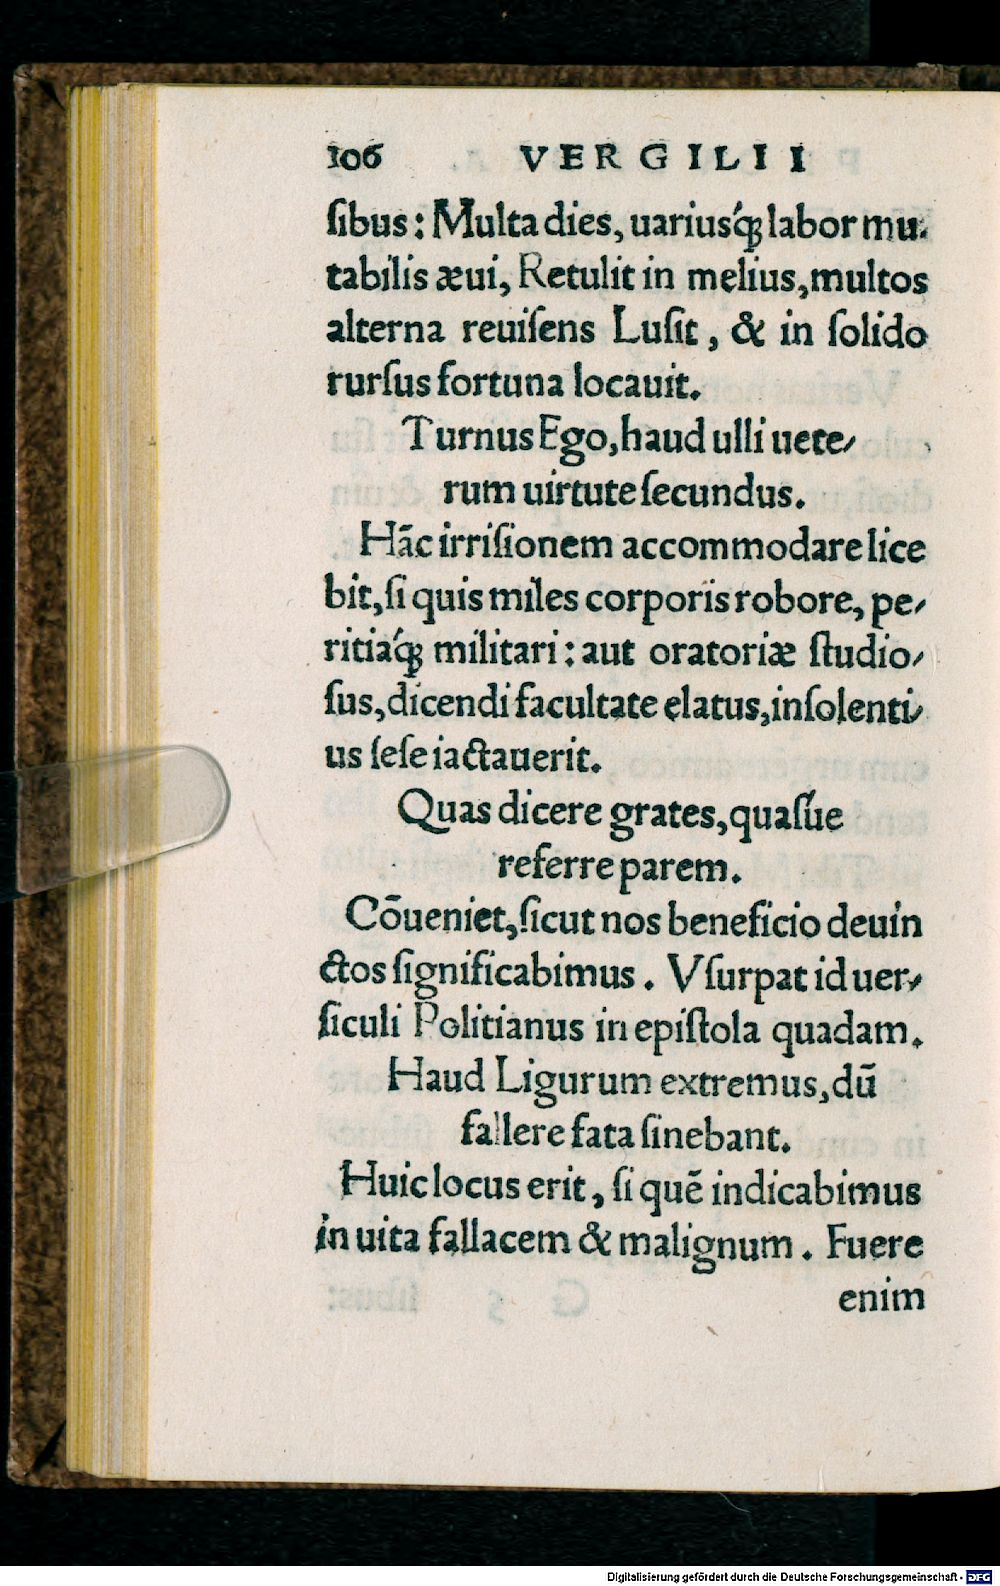 106 VERGILII
ſibus: Multa dies, uariusq́ꝫ labor mu-
tabilis æui, Retulit in melius, multos
alterna reuiſens Luſit, & in ſolido
rurſus fortuna locauit.
Turnus Ego, haud ulli uete⸗
rum uirtute ſecundus.
Hāc irriſionem accommodare lice
bit, ſi quis miles corporis robore, pe⸗
ritiaq́ꝫ militari: aut oratoriæ ſtudio⸗
ſus, dicendi facultate elatus, inſolenti⸗
us ſeſe iactauerit.
Quas dicere grates, quaſúe
referre parem.
Cōueniet, ſicut nos beneficio deuin
ctos ſignificabimus. Vſurpat id uer⸗
ſiculi Politianus in epiſtola quadam.
Haud Ligurum extremus, dū
fallere fata ſinebant.
Huic locus erit, ſi quē indicabimus
in uita fallacem & malignum. Fuere
enim
Digitalisierung gefördert durch die Deutsche Forschungsgemeinschaft - DFG